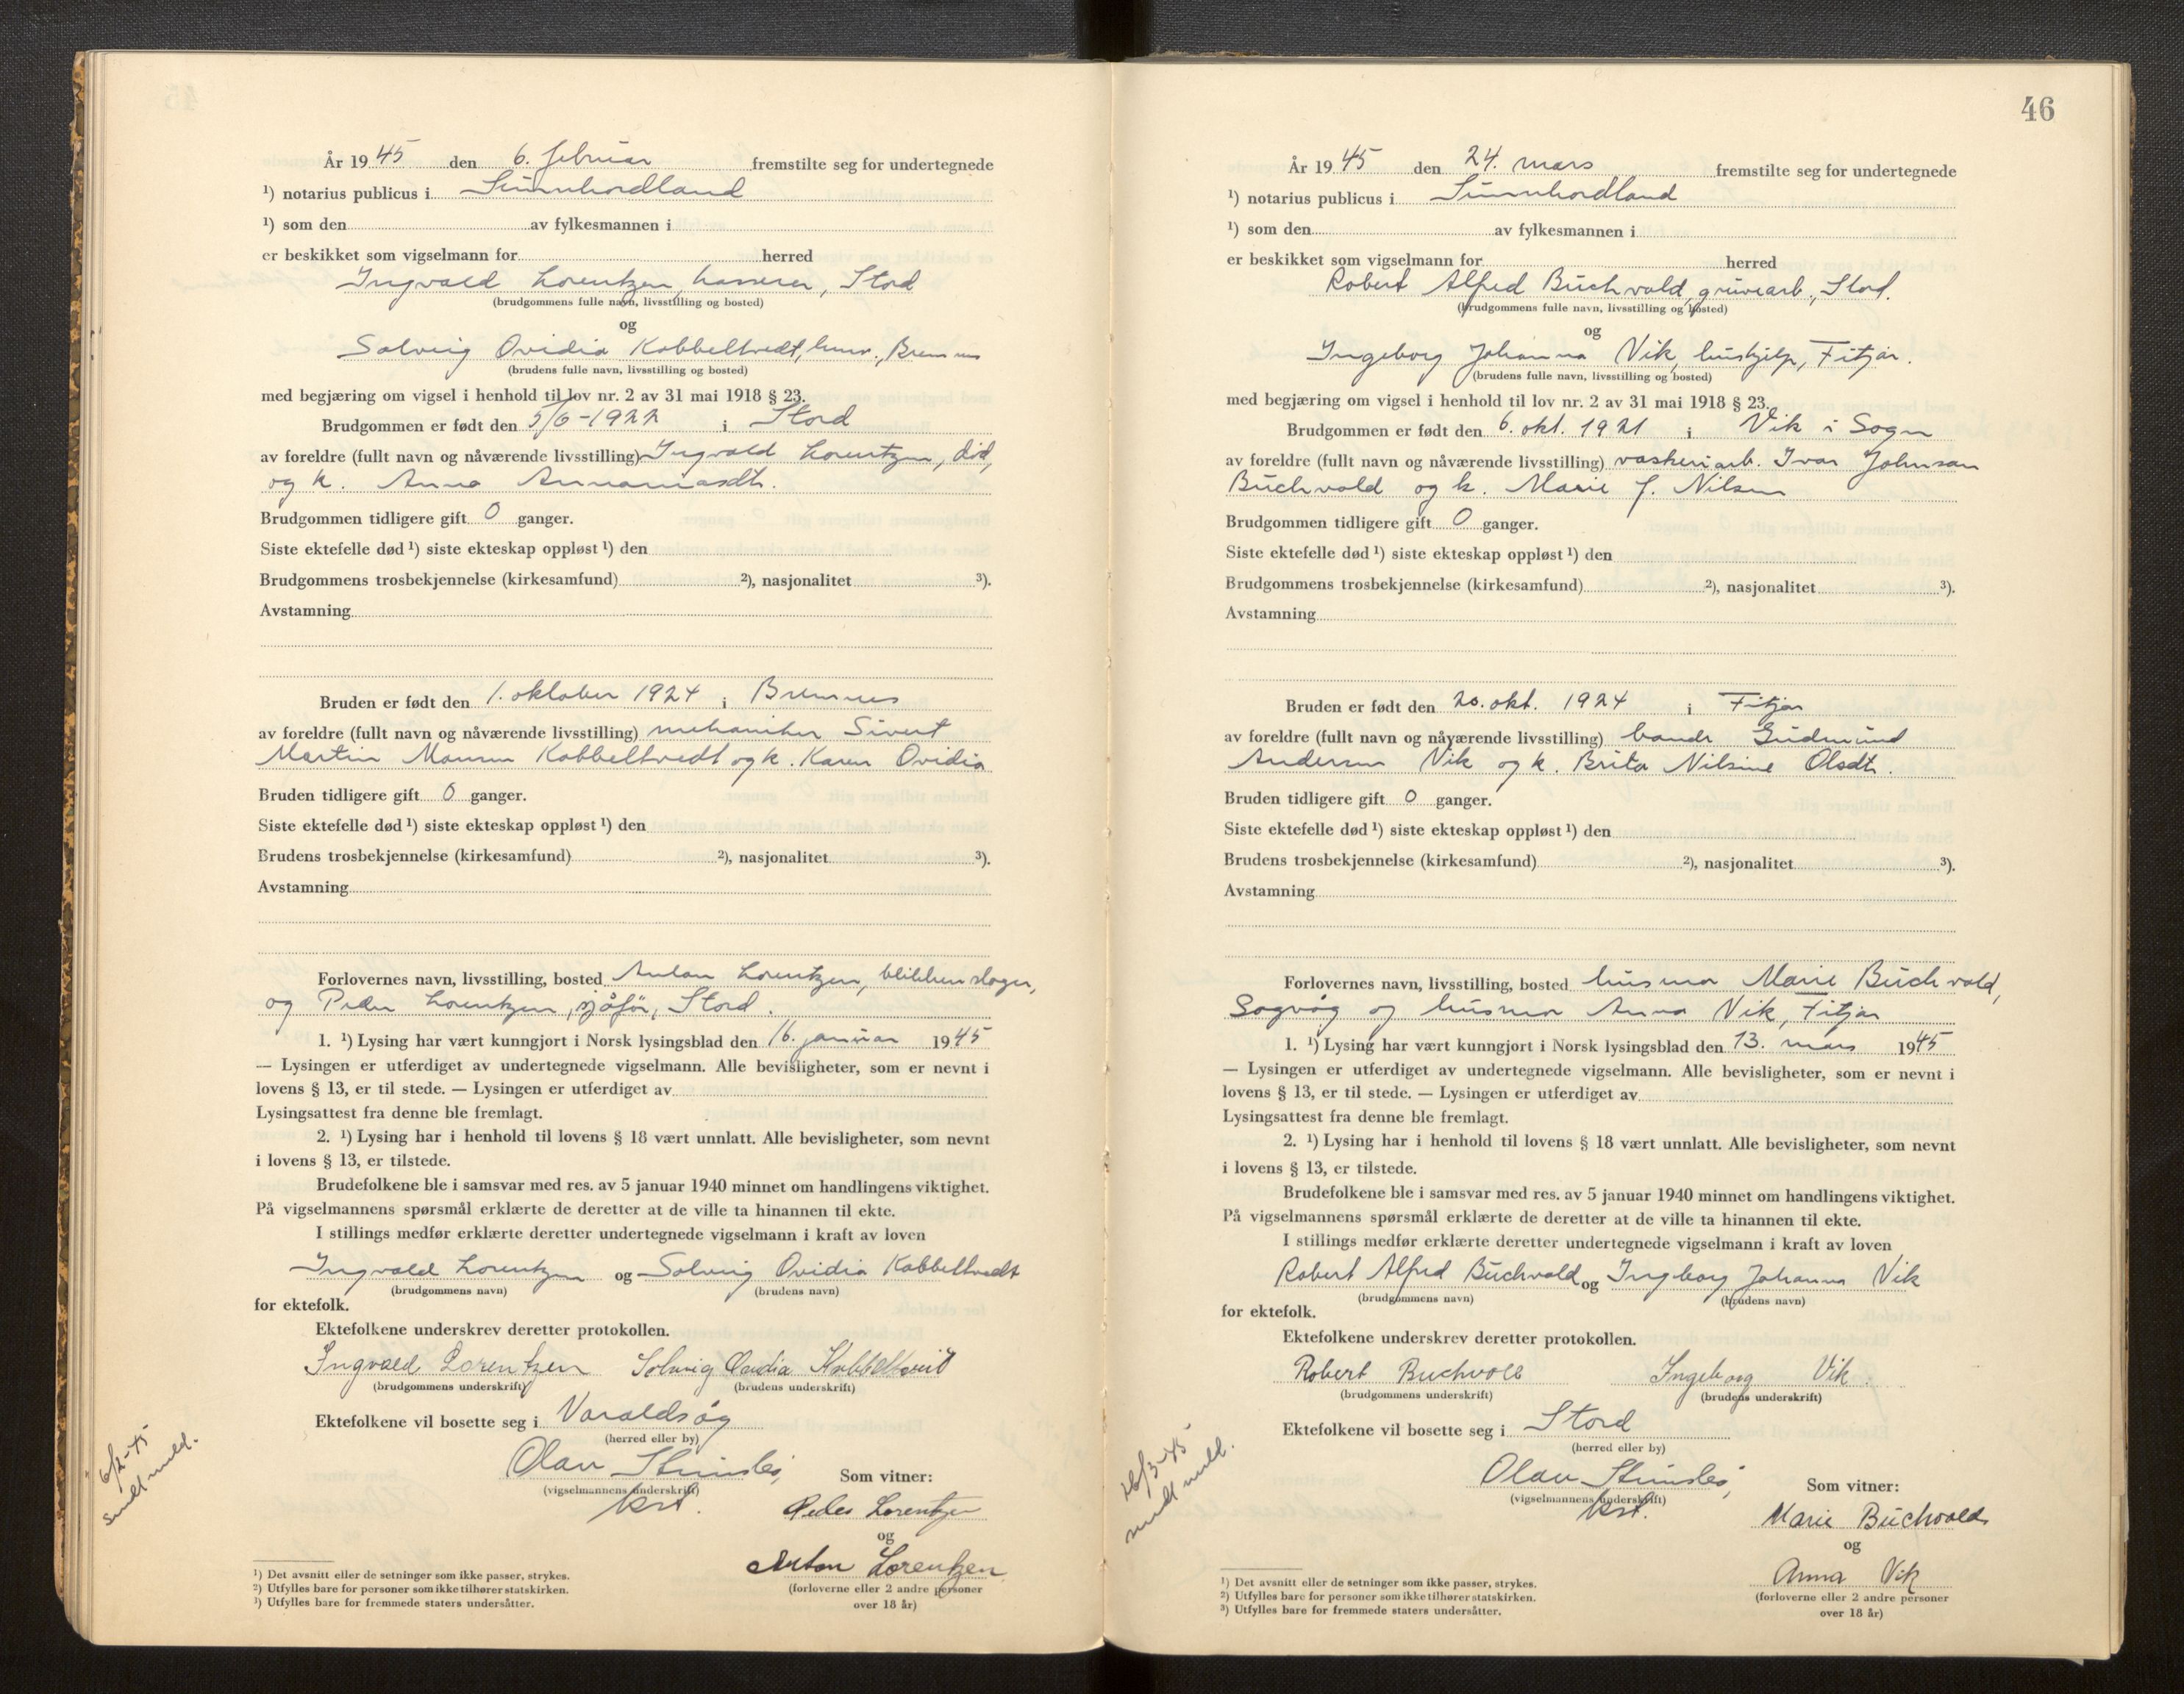 År 1945 den 6. februar fremstilte seg for undertegnede
¹) notarius publicus i Sunnhordland
¹) som den av fylkesmannen i
er beskikket som vigselmann for herred
Ingvald Lorentzen, kasserer, Stord
(brudgommens fulle navn, livsstilling og bosted)
og
Solveig Ovidia Kobbeltvedt, husv., Bremnes
(brudens fulle navn, livsstilling og bosted)
med begjæring om vigsel i henhold til lov nr. 2 av 31 mai 1918 § 23.
Brudgommen er født den 5/6-1922 i Stord
av foreldre (fullt navn og nåværende livsstilling) Ingvald Lorentzen, død,
og k. Anna
Brudgommen tidligere gift 0 ganger.
Siste ektefelle død ¹) siste ekteskap oppløst ¹) den
Brudgommens trosbekjennelse (kirkesamfund) ²), nasjonalitet ³).
Avstamning
Bruden er født den 1. oktober 1924 i Bremnes
av foreldre (fullt navn og nåværende livsstilling) mekaniker Sivert
Martin Monsen Kobbeltvedt og k. Karen Ovidia
Bruden tidligere gift 0 ganger.
Siste ektefelle død ¹) siste ekteskap oppløst ¹) den
Brudens trosbekjennelse (kirkesamfund) ²), nasjonalitet ³).
Avstamning
Forlovernes navn, livsstilling, bosted Anton Lorentzen, blikkenslager,
og Peder Lorentzen, sjåfør, Stord.
1. ¹) Lysing har vært kunngjort i Norsk lysingsblad den 16. januar 1945
— Lysingen er utferdiget av undertegnede vigselmann. Alle bevisligheter, som er nevnt i
lovens § 13, er til stede. — Lysingen er utferdiget av
Lysingsattest fra denne ble fremlagt.
2. ¹) Lysing har i henhold til lovens § 18 vært unnlatt. Alle bevisligheter, som nevnt
i lovens § 13, er tilstede.
Brudefolkene ble i samsvar med res. av 5 januar 1940 minnet om handlingens viktighet.
På vigselmannens spørsmål erklærte de deretter at de ville ta hinannen til ekte.
I stillings medfør erklærte deretter undertegnede vigselmann i kraft av loven
Ingvald Lorentzen og Solveig Ovidia Kobbeltvedt
(brudgommens navn) (brudens navn)
for ektefolk.
Ektefolkene underskrev deretter protokollen.
Ingvald Lorentzen Solveig Ovidia Kobbeltveit
(brudgommens underskrift) (brudens underskrift)
Ektefolkene vil bosette seg i Varaldsøy
(herred eller by)
Olav
(vigselmannens underskrift)
kst.
Som vitner:
Peder Lorentzen
og
Anton Lorentzen
(forloverne eller 2 andre personer
over 18 år)
6/2-45
sendt meld.
¹) Det avsnitt eller de setninger som ikke passer, strykes.
²) Utfylles bare for personer som ikke tilhører statskirken.
³) Utfylles bare for fremmede staters undersåtter.
46
År 1945 den 24. mars fremstilte seg for undertegnede
¹) notarius publicus i Sunnhordland
¹) som den av fylkesmannen i
er beskikket som vigselmann for herred
Robert Alfred Buchvold, gruvearb., Stord.
(brudgommens fulle navn, livsstilling og bosted)
og
Ingeborg Johanna Vik, hushjelp, Fitjar.
(brudens fulle navn, livsstilling og bosted)
med begjæring om vigsel i henhold til lov nr. 2 av 31 mai 1918 § 23.
Brudgommen er født den 6. okt. 1921 i Vik i Sogn
av foreldre (fullt navn og nåværende livsstilling) vaskeriarb. Ivar Johnson
Buchvold og k. Marie J. Nilsen
Brudgommen tidligere gift 0 ganger.
Siste ektefelle død ¹) siste ekteskap oppløst ¹) den
Brudgommens trosbekjennelse (kirkesamfund) ²), nasjonalitet ³).
Avstamning
Bruden er født den 20. okt. 1924 i Fitjar
av foreldre (fullt navn og nåværende livsstilling) bonde Gudmund
Andersen Vik og k. Brita Nilsine Olsdtr.
Bruden tidligere gift 0 ganger.
Siste ektefelle død ¹) siste ekteskap oppløst ¹) den
Brudens trosbekjennelse (kirkesamfund) ²), nasjonalitet ³).
Avstamning
Forlovernes navn, livsstilling, bosted husmor Marie Buchvold,
Sagvåg og husmor Anna Vik, Fitjar
1. ¹) Lysing har vært kunngjort i Norsk lysingsblad den 13. mars 1945
— Lysingen er utferdiget av undertegnede vigselmann. Alle bevisligheter, som er nevnt i
lovens § 13, er til stede. — Lysingen er utferdiget av
Lysingsattest fra denne ble fremlagt.
2. ¹) Lysing har i henhold til lovens § 18 vært unnlatt. Alle bevisligheter, som nevnt
i lovens § 13, er tilstede.
Brudefolkene ble i samsvar med res. av 5 januar 1940 minnet om handlingens viktighet.
På vigselmannens spørsmål erklærte de deretter at de ville ta hinannen til ekte.
I stillings medfør erklærte deretter undertegnede vigselmann i kraft av loven
Robert Alfred Buchvold og Ingeborg Johanna Vik
(brudgommens navn) (brudens navn)
for ektefolk.
Ektefolkene underskrev deretter protokollen.
Robert Buchvold Ingeborg Vik.
(brudgommens underskrift) (brudens underskrift)
Ektefolkene vil bosette seg i Stord
(herred eller by)
Olav
(vigselmannens underskrift)
kst.
Som vitner:
Marie Buchvold
og
Anna Vik
(forloverne eller 2 andre personer
over 18 år)
26/3-45
sendt meld.
¹) Det avsnitt eller de setninger som ikke passer, strykes.
²) Utfylles bare for personer som ikke tilhører statskirken.
³) Utfylles bare for fremmede staters undersåtter.